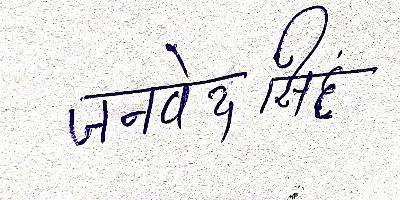 जनवेद सिंह